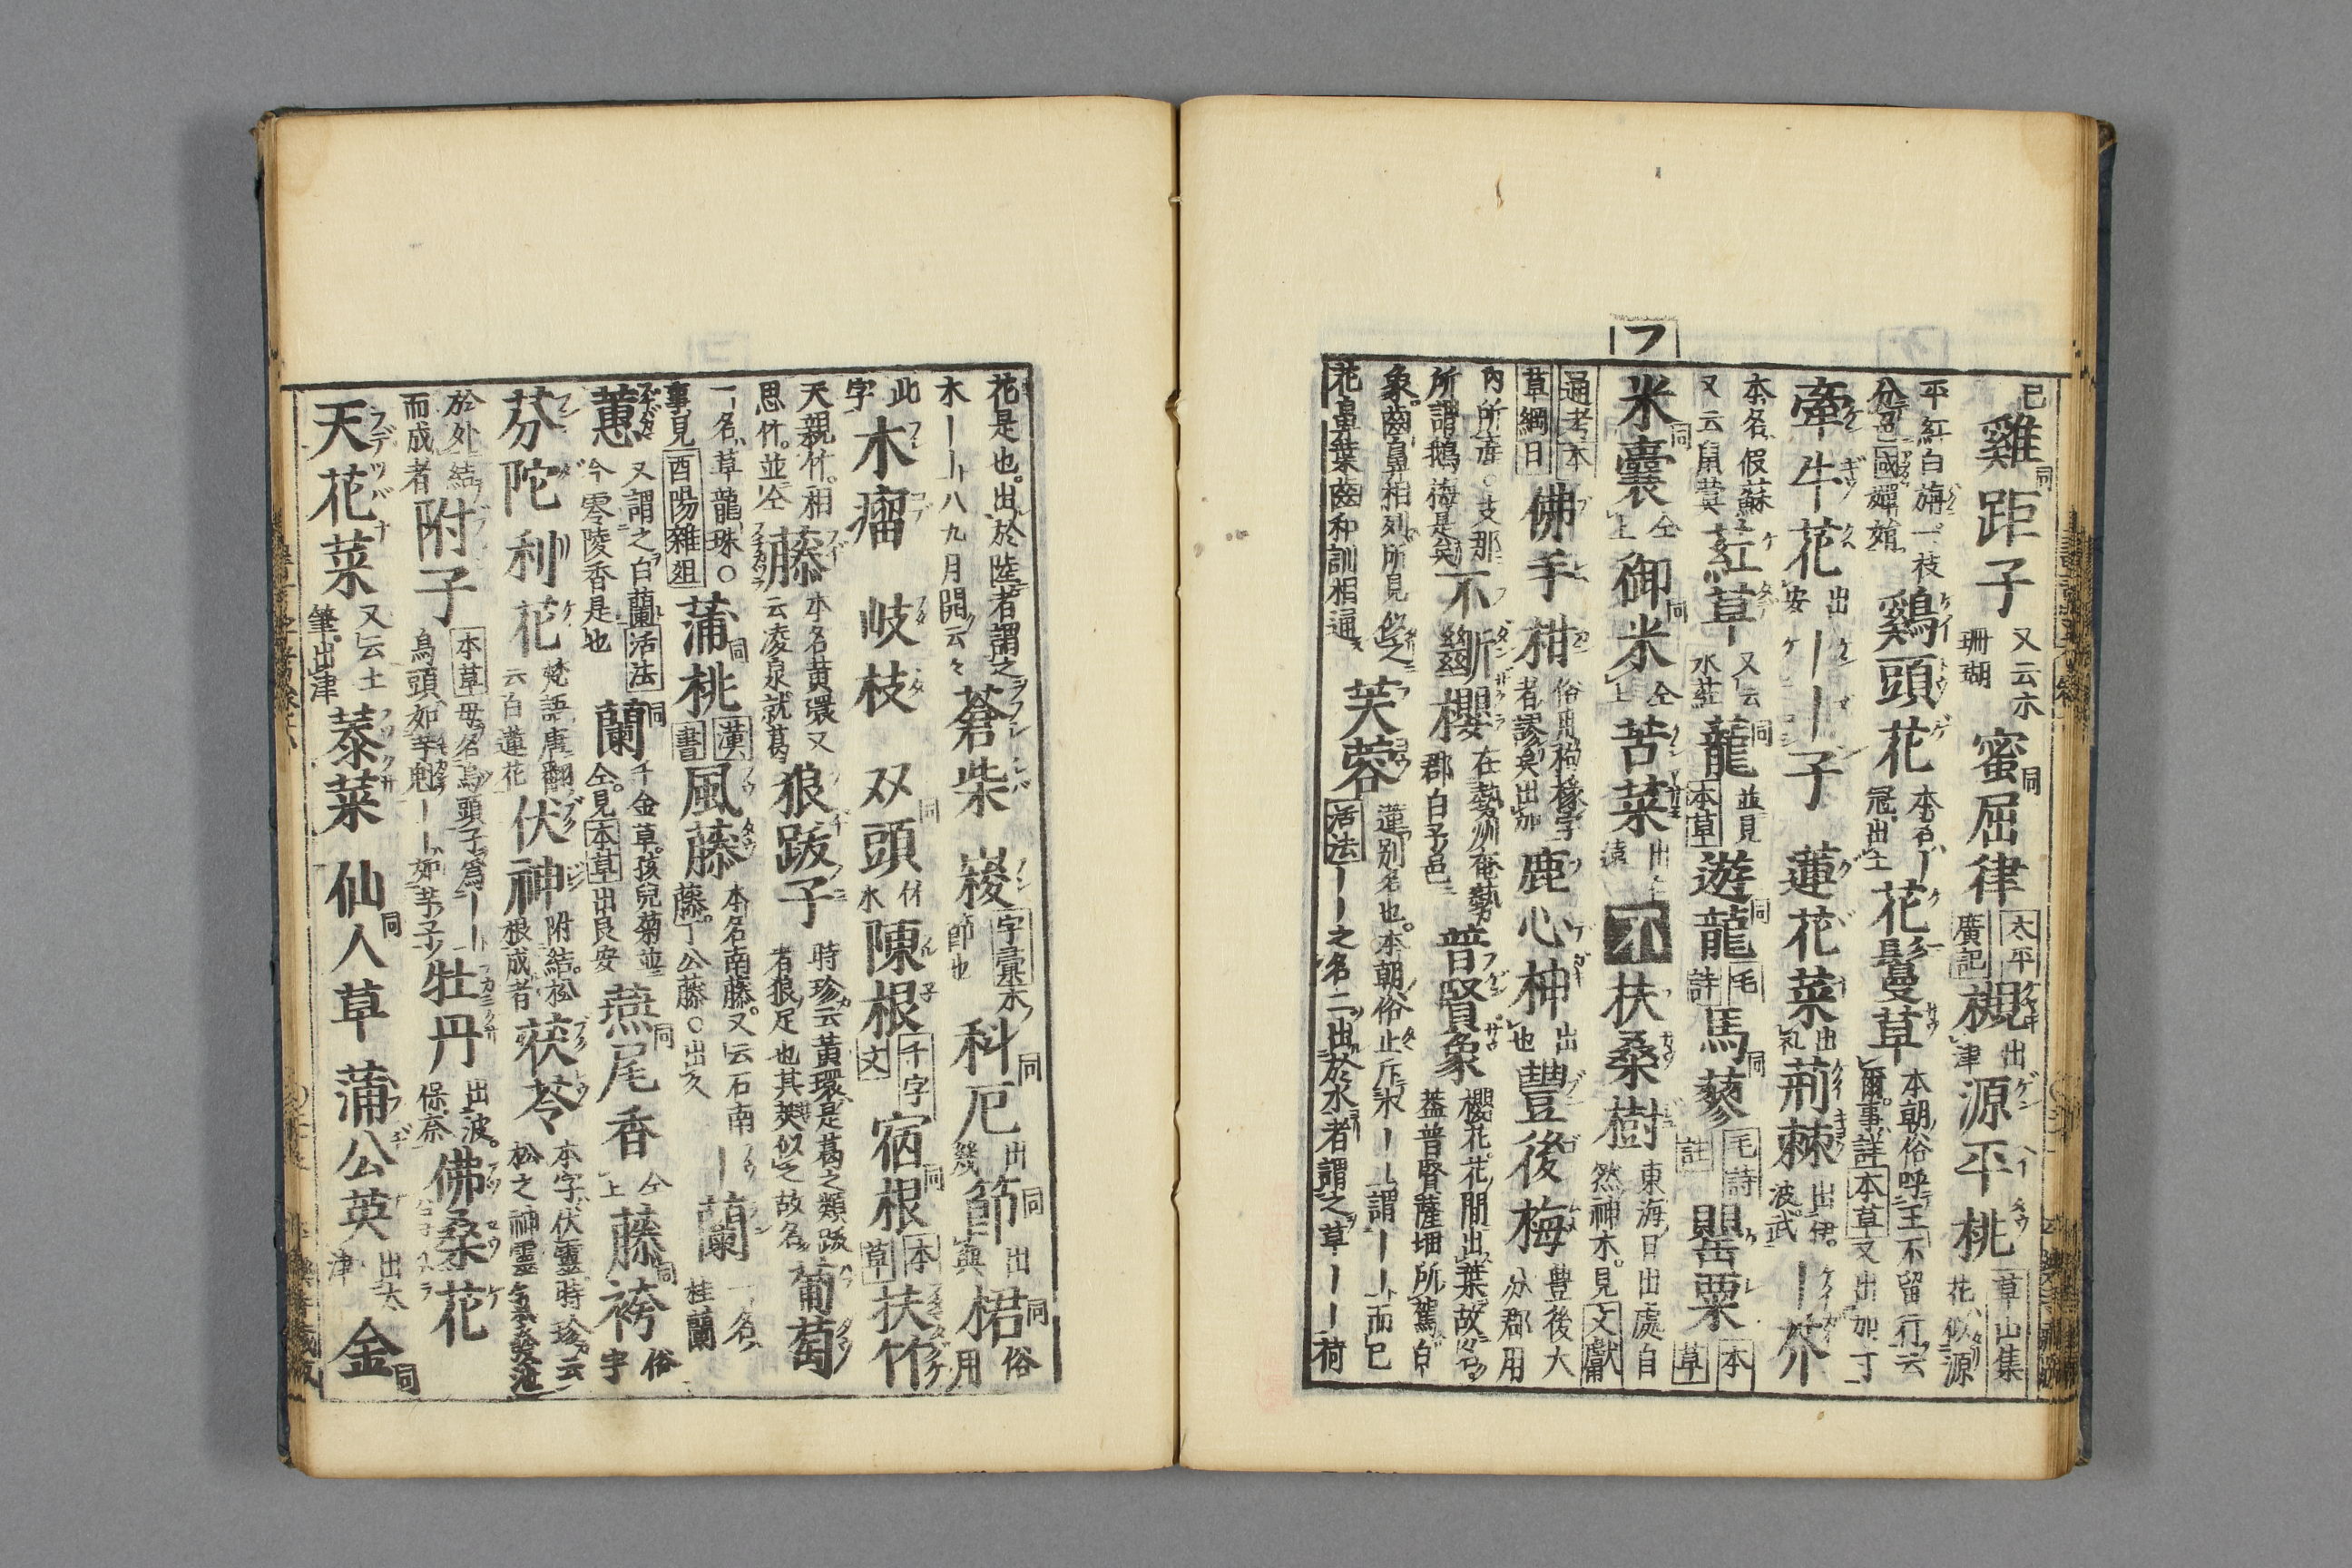 フ
巳 雞距子 又云木珊瑚 蜜屈律 太平廣記 槻 出津 源平桃 草山集 花似源
平紅白 一枝分 國嬋娟 鷄頭花 本名 冠出土 花鬘草 本朝俗呼王不留行云爾事詳本草又出加丁
牽牛花 出安 ーー子 蓮花菜 出礼 荊棘 出伊波武 ー芥
本名假蘇又云鼠蓂 葒草 又云水葒 蘢 並見本草 遊龍 毛詩 馬蓼 毛詩註 罌粟 本草
米囊 仝上 御米 仝上 苦菜 出遠 不 扶桑樹 東海日出處自然神木見文獻
通考本草綱目 佛手柑 俗用枸櫞字者謬矣出加 鹿心柿 出也 豐後梅 豊後大分郡用
內所產支那所謂鵝梅是矣 不斷櫻 在勢州奄藝郡白子邑 普賢象 櫻花花間出葉故名蓋普賢薩埵所駕白
象齒鼻相列所見似之 芙蓉 蓮別名也本朝俗止斥木ーー謂ーー而已
花鼻葉齒和訓相通 活法ーー之名二出於水者謂之草ーー荷
花是也出於陸者謂之木ーー八九月開云々 蒼柴 㟎 字彙木節也 科厄 出幾 節 出與 桾 俗用
此字 木瘤 岐枝 双頭 竹木 陳根 千字文 宿根 本草 扶竹
天親竹相思竹並仝 藤 本名黄環又云凌泉就葛 狼跋子 時珍云黃環是葛之類跋者狼足也其莢似之故名 葡萄
一名草龍珠○事見酉陽雜俎 蒲桃 漢書 風藤 本名南藤又云石南藤丁公藤○出久 ー蘭 一名桂蘭
蕙 又謂之白蘭活法今零陵香是也 蘭 千金草孩兒菊並仝見本草出良安 燕尾香 仝上 藤袴 俗字
芬陀利花 梵語唐翻云白蓮花 伏神 附結松根成者 茯苓 本字伏靈時珍云松之神靈氣發泄
於外結而成者 附子 本草母名烏頭子爲ーー烏頭如芋魁ーー如芋子 牡丹 出波保奈 佛桑花
天花菜 又云土筆出津 蓁菜 仙人草 蒲公英 出太津 金